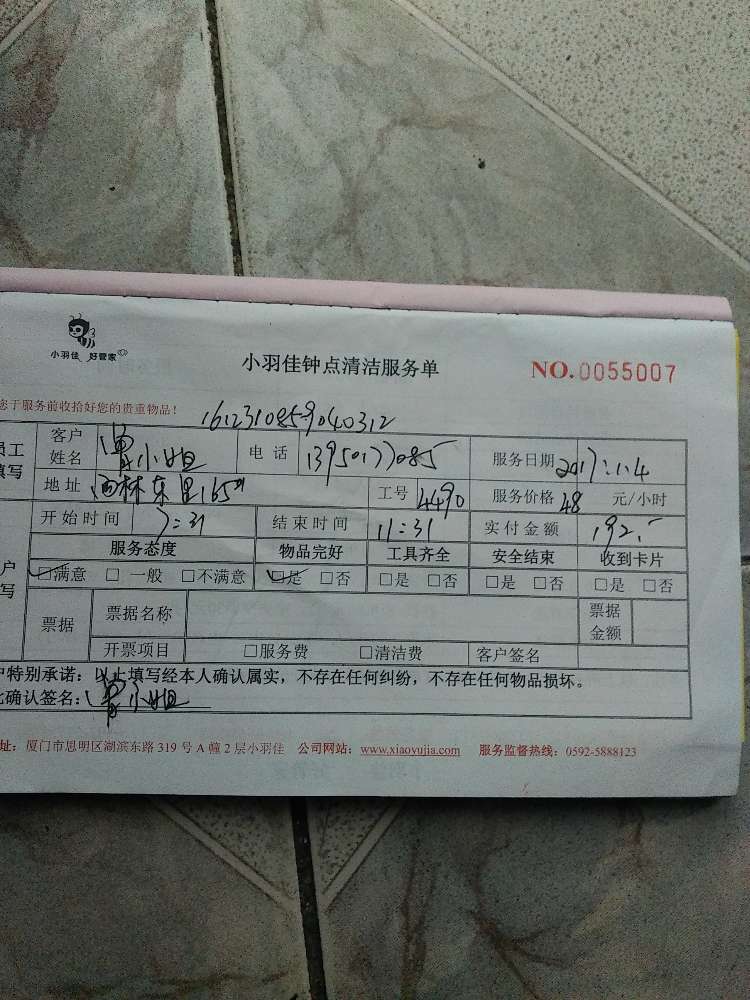 小羽佳 好管家
小羽佳钟点清洁服务单 NO.0055007
您于服务前收拾好您的贵重物品! 1612310859040312
员工填写 客户姓名 曾小姐 电话 13950177085 服务日期 2017.1.4
地址 西林东里165# 工号 4490 服务价格 48 元/小时
开始时间 7:31 结束时间 11:31 实付金额 192.
服务态度 物品完好 工具齐全 安全结束 收到卡片
户写 ☑满意 □一般 □不满意 ☑是 □否 □是 □否 □是 □否 □是 □否
票据 票据名称 票据金额
开票项目 □服务费 □清洁费 客户签名
户特别承诺:以上填写经本人确认属实,不存在任何纠纷,不存在任何物品损坏。
此确认签名:曾小姐
址:厦门市思明区湖滨东路 319 号 A 幢 2 层小羽佳 公司网站:www.xiaoyujia.com 服务监督热线:0592-5888123